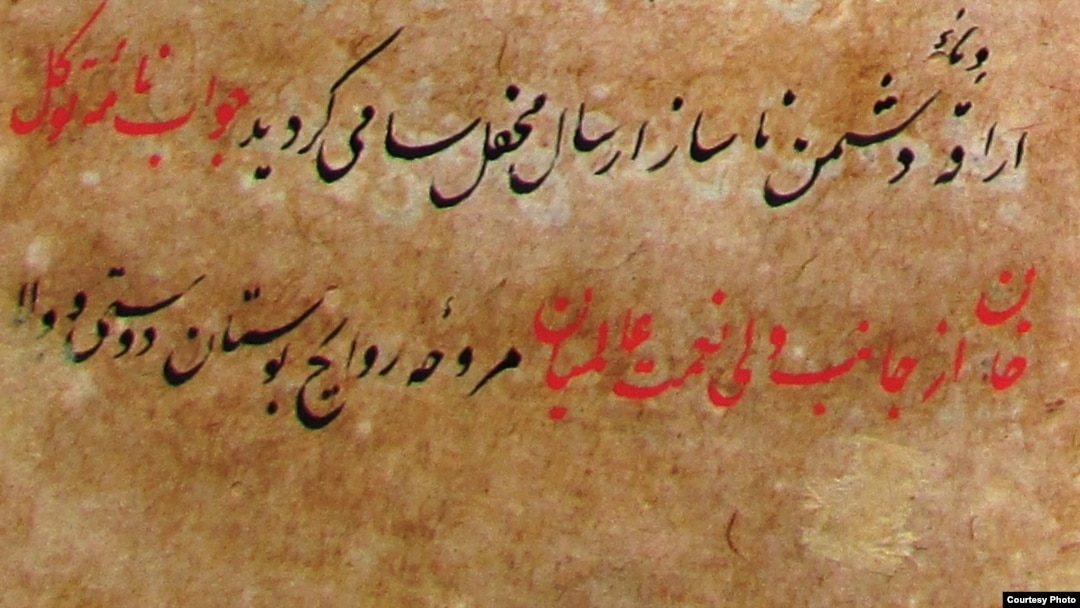 دماء
اراقه دشمن ناساز ارسال محفل سامی گردید جواب نامهٔ توکل
خان از جانب ولی نعمت عالمیان مروحهٔ روایح بوستان دوستی و ولا
Courtesy Photo